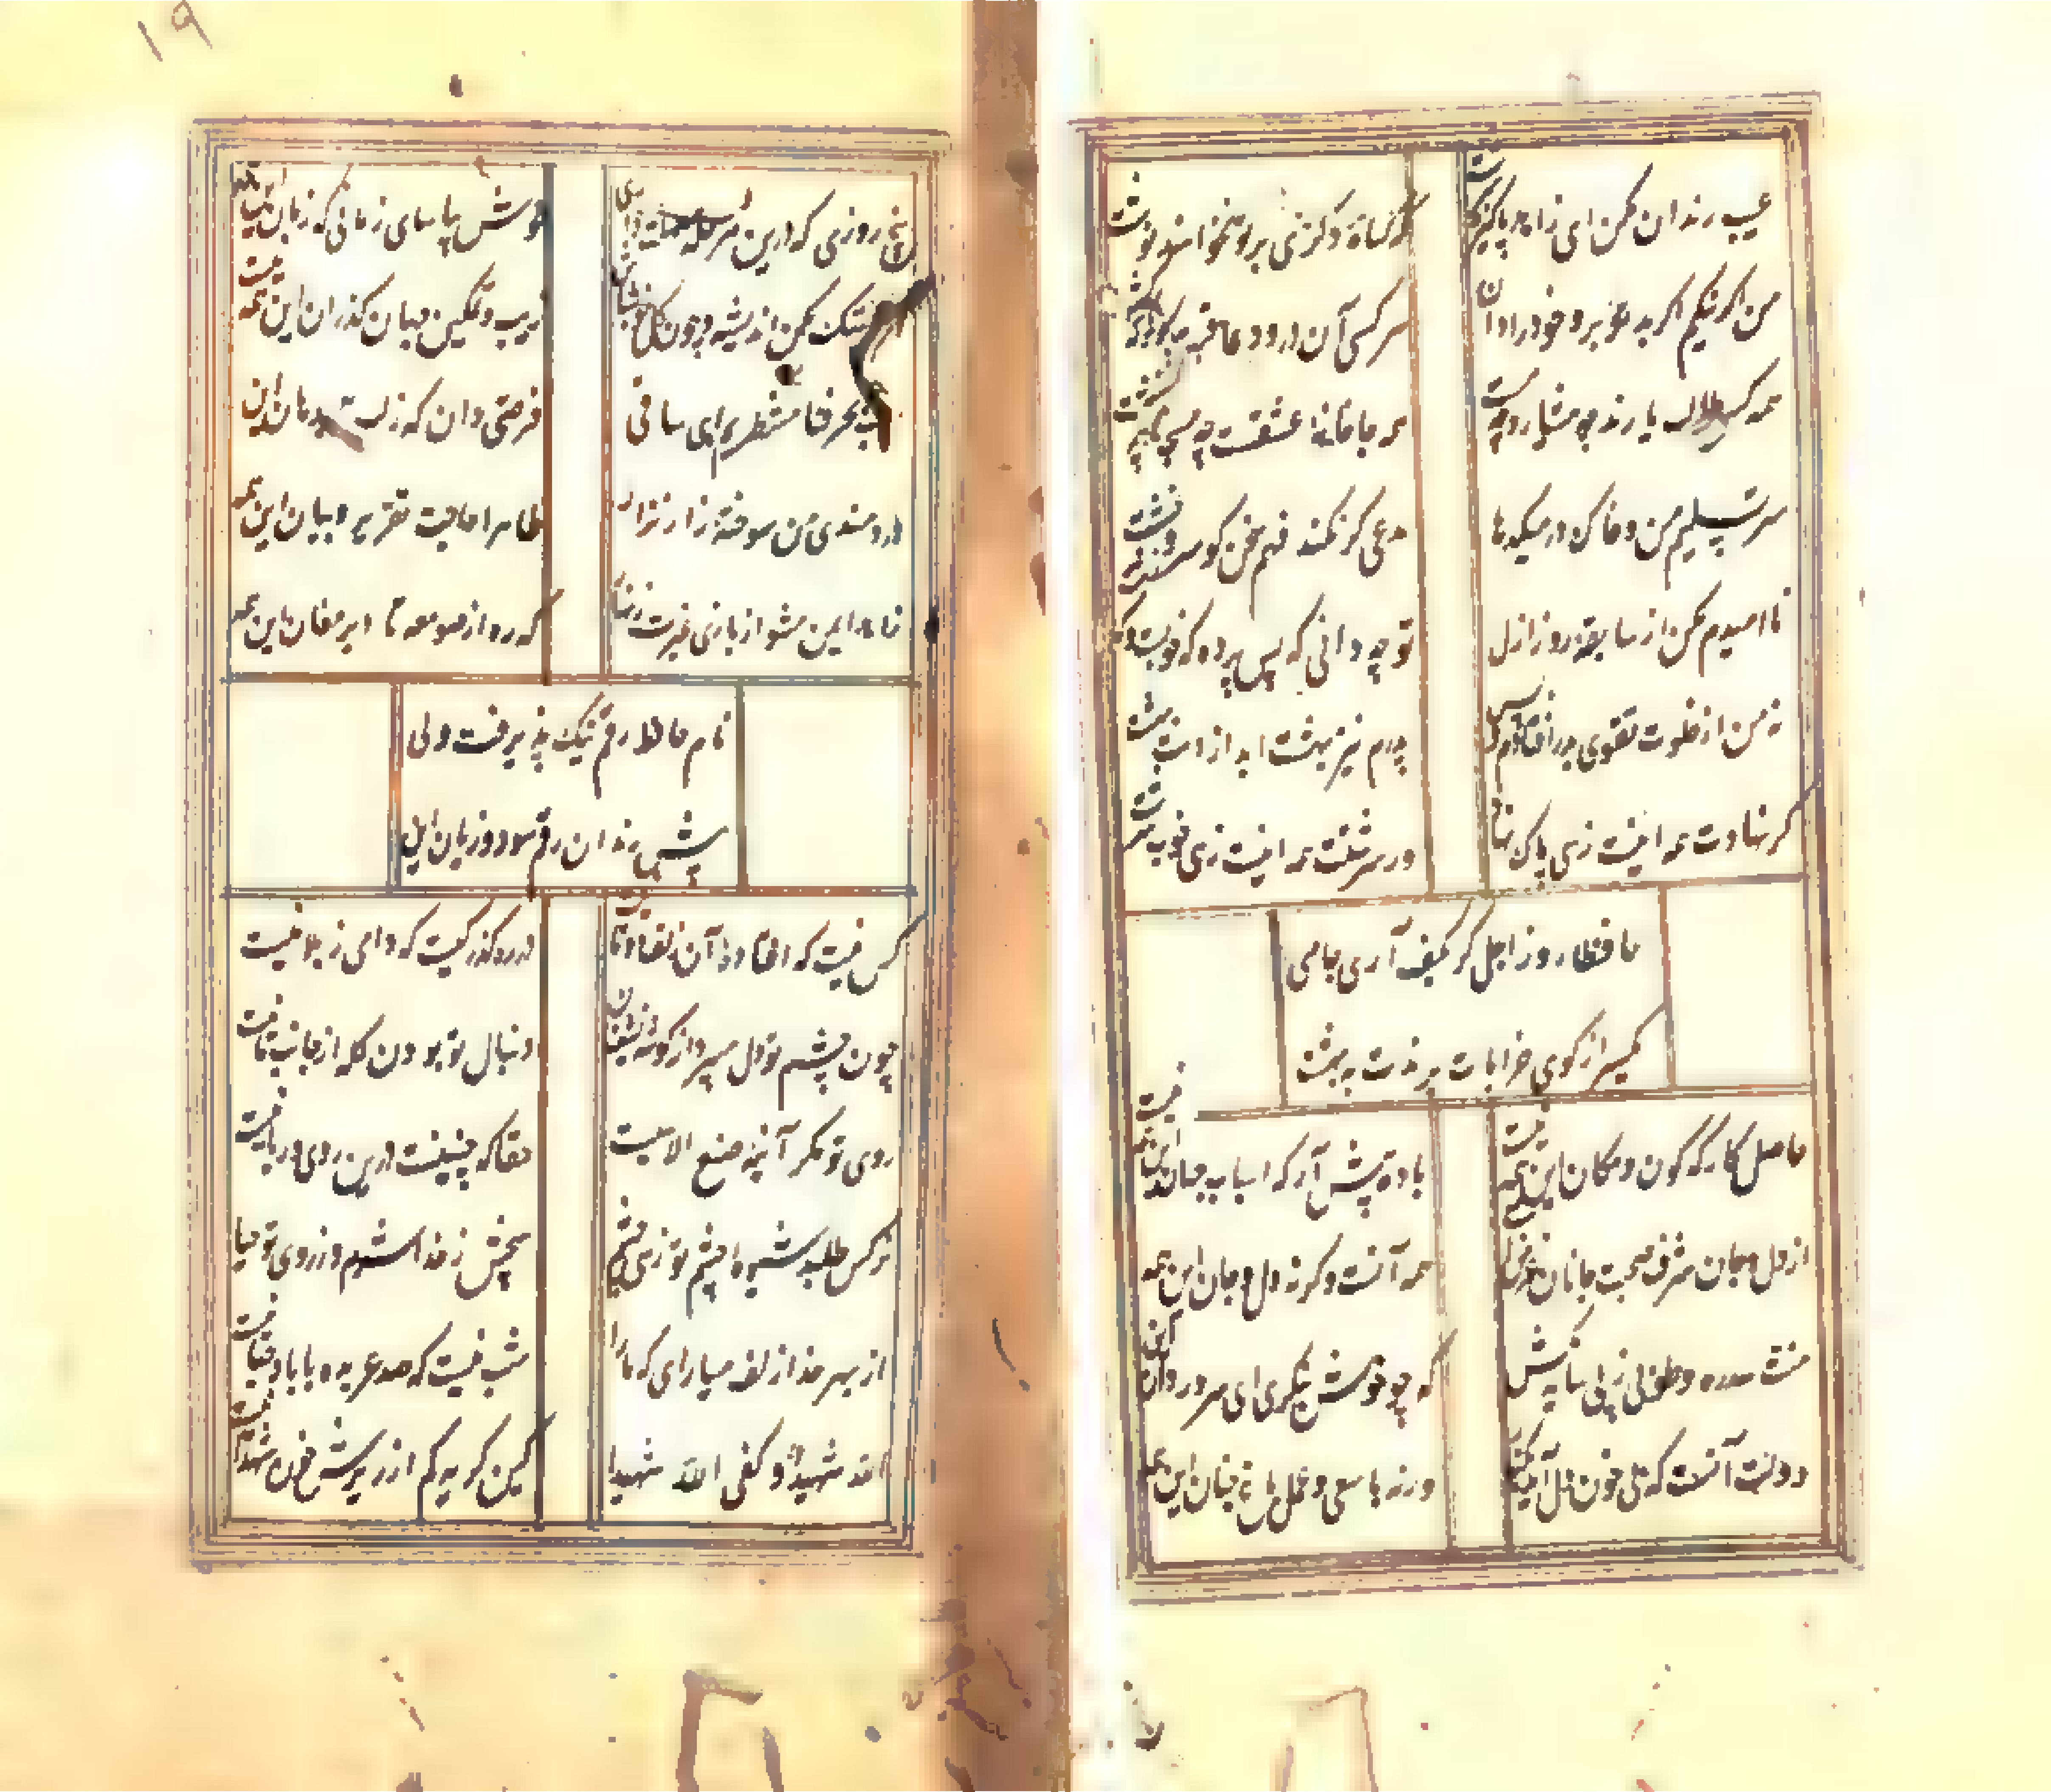 عیب رندان مکن ای زاهد پاکیزه سرشت
که گناه دگری بر تو نخواهند نوشت
من اگر نیکم اگر بد تو برو خود را دان
هر کسی آن درود عاقبت کار که کشت
همه کس طالب یارند چه هشیار و چه مست
همه جا خانه عشقست چه مسجد چه کنشت
سر تسلیم من و خاک در میکدها
مدعی گر نکند فهم سخن گو سر و خشت
نا امیدم مکن از سابقه روز ازل
تو چه دانی که پس پرده که خوبست و که زشت
نه من از خلوت تقوی بدر افتادم و بس
پدرم نیز بهشت ابد از دست بهشت
گر نهادت همه اینست زهی پاک نهاد
ور سرشتت همه اینست زهی خوب سرشت
حافظا روز اجل گر بکف آری جامی
یکسر از کوی خرابات برندت به بهشت
حاصل کارگه کون و مکان این همه نیست
باده پیش آر که اسباب جهان این همه نیست
از دل و جان شرف صحبت جانان غرض است
همه آنست وگرنه دل و جان این همه
منت سدره و طوبی ز پی سایه مکش
که چو خوش بنگری ای سرو روان این
دولت آنست که بی خون دل آید بکنار
ورنه با سعی و عمل باغ جنان این همه
پنج روزی که درین مرحله مهلت داری
خوش بیاسای زمانی که زمان این همه
مکن اندیشه که چون گل
فرصتی دان که ز لب تا بدهان این
بر لب بحر فنا منتظریم ای ساقی
دردمندی من سوخته زار نزار
ظاهرا حاجت تقریر و بیان این همه
زاهد ایمن مشو از بازی غیرت زنهار
که ره از صومعه تا دیر مغان این همه
نام حافظ رقم نیک پذیرفت ولی
پیش رندان رقم سود و زیان این
کس نیست که افتاده آن زلف دوتا نیست
در رهگذر کیست که دامی ز بلا نیست
چون چشم تو دل میبرد از گوشه نشینان
دنبال تو بودن گنه از جانب ما نیست
روی تو مگر آینه صنع الاهیست
حقا که چنینست درین روی و ریا نیست
نرگس طلبد شیوه چشم تو زهی چشم
از بهر خدا زلف میارای که ما را
شب نیست که صد عربده با باد صبا نیست
الله شهیدا و کفی الله شهیدا